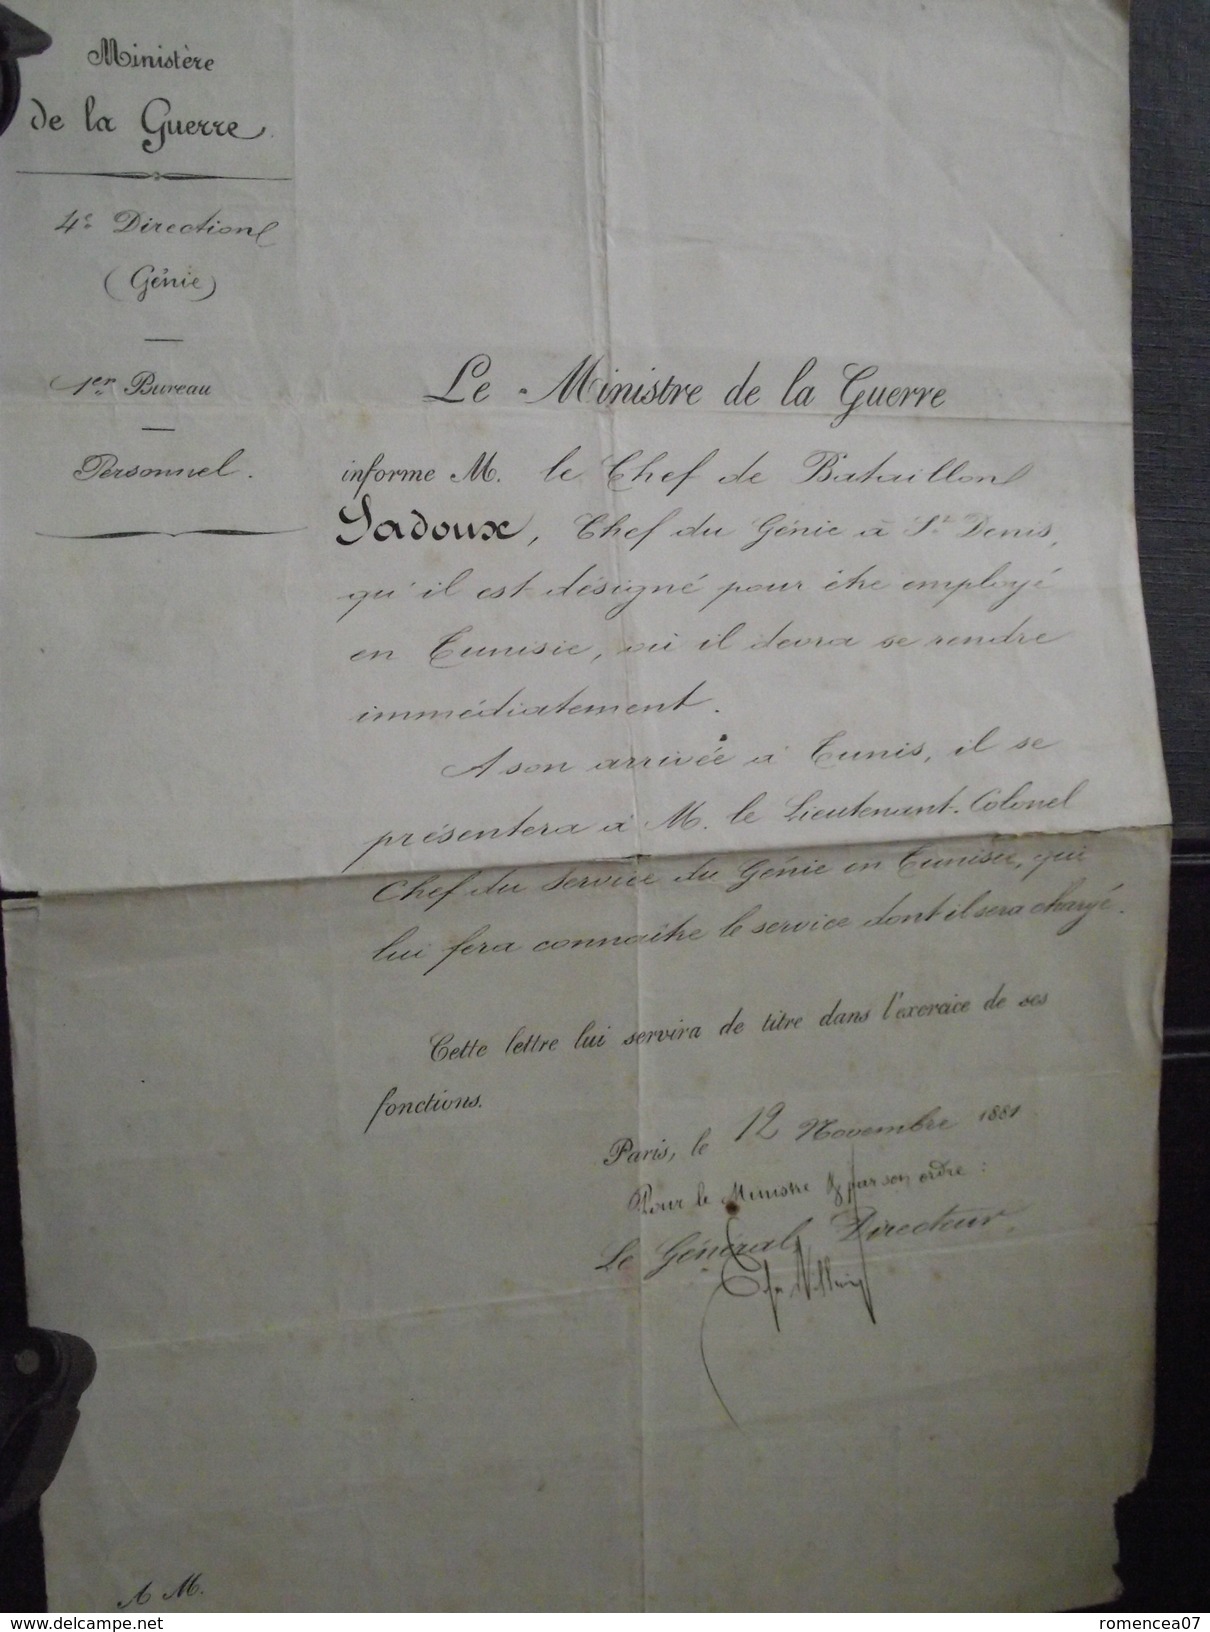 Ministère
de la Guerre
4e Direction
(Génie)
1er Bureau
Personnel.
Le Ministre de la Guerre
informe M. le Chef de Bataillon
Sadoux, Chef du Génie à St Denis,
qu'il est désigné pour être employé
en Tunisie, où il devra se rendre
immédiatement.
A son arrivée à Tunis, il se
présentera à M. le Lieutenant-Colonel
Chef du Service du Génie en Tunisie, qui
lui fera connaître le service dont il sera chargé.
Cette lettre lui servira de titre dans l'exercice de ses
fonctions.
Paris, le 12 Novembre 1881
Pour le Ministre & par son ordre :
Le Général, Directeur,
A M.
romencea07